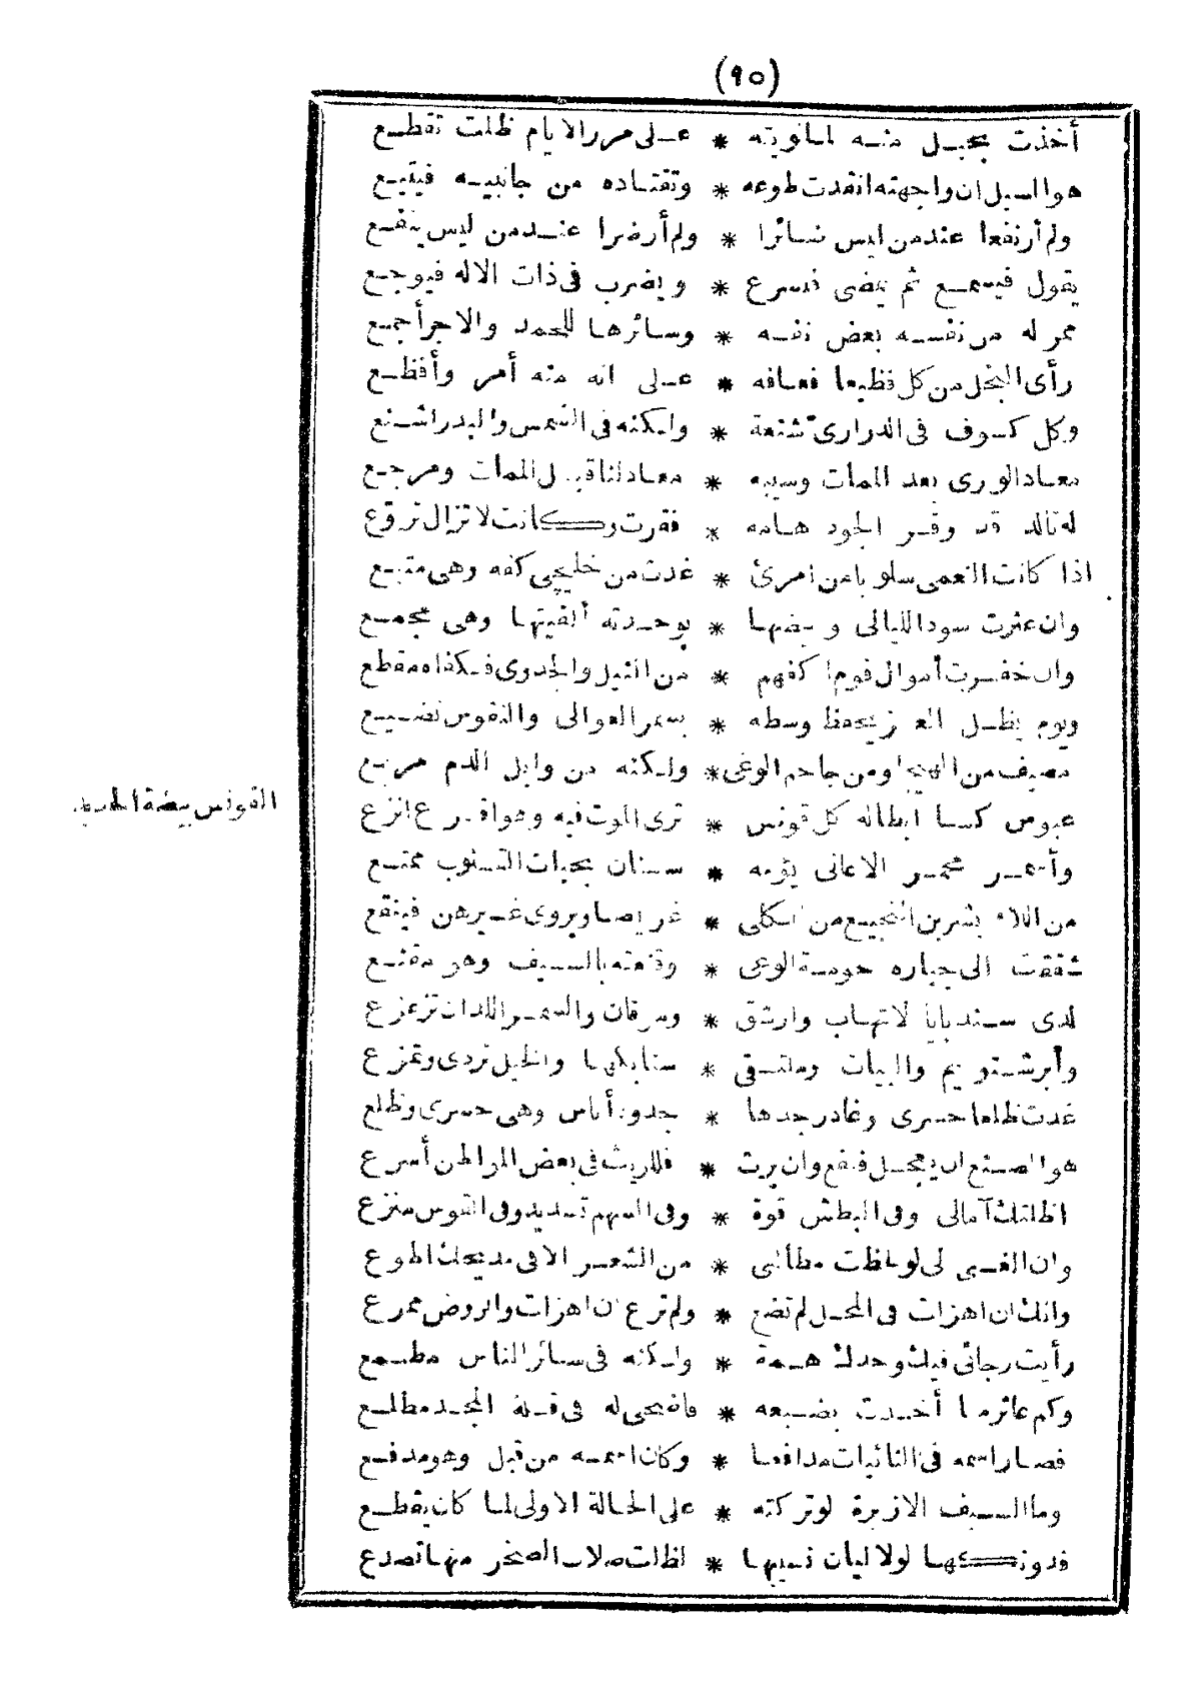 (٩٥)
أخذت بحبـل منـه لمـا لويته * عـلى مر را لا يام ظلت تقطـع
هو السيل ان واجهته انقدت طوعه * وتقتـاده من جانبيـه فيتبـع
ولم أر نفعا عند من ليس ضـائرا * ولم أر ضرا عنـد من ليس ينفـع
يقول فيسمـع ثم يمضى فيسرع * ويضرب فى ذات الاله فيوجـع
ممر له من نفسـه بعض نفسـه * وسـائرهـا للحمد والاجر أجمـع
رأى البخل من كل فظيعا فعـافه * عـلى انه منه أمر وأفظـع
وكل كسوف فى الدرارى شنعة * ولـكنه فى الشمس والبدر اشـنع
معـاد الورى بعد الممات وسيبه * معـاد لنا قبـل الممات ومرجـع
له تالد قد وقـر الجود هـامه * فقرت وكانت لا تزال تروّع
اذا كانت النعمى سلوبا من امرئ * غدت من خليجى كفه وهى متبـع
وان عثرت سود الليالى وبيضهـا * بوحـدته ألفيتهـا وهى مجمـع
وان خفـرت أموال قوم اكفهم * من النيل والجدوى فـكفاه مقطع
ويوم يظـل العز يحفظ وسطه * بسمر العوالى والنفوس تضـيـع
مصيف من الهيجا ومن جاحم الوغى * ولـكنه من وابل الدم مربـع
عبوس كسـا ابطاله كل قونس * ترى الموت فيه وهو اقرع انزع
القونس بيضة الحديد
وأسمـر محمـر الاعالى يؤمه * سـنان بحبات القـلوب ممتـع
من اللاء يشربن النجيـع من الكلى * غريضـا ويروى غـيرهن فينقع
شققت الى جباره حومـة الوغى * وقنعته بالسـيف وهو مقنـع
لدى سـندبايا لا تهـاب وارشق * وموقان والسمـر اللدان تزعزع
وأبرشـتويم والبيات وملتـقى * سنابكهـا والخيل تردى وتمزع
غدت ظلعا حسرى وغادر جدها * جدود أناس وهى حسرى وظلع
هو الصـنع ان يعجـل فنفع وان يرث * فللريث فى بعض المواطن أسرع
اظلتك آمالى وفى البطش قوة * وفى السهم تسديد وفى القوس منزع
وان الغـنى لى لو لحظت مطالبى * من الشعـر الا فى مديحك اطوع
وانك ان اهزلت فى المحـل لم تضع * ولم ترع ان اهزلت والروض ممرع
رأيت رجائى فيك وحدك همـة * ولـكنه فى سائر الناس مطـمع
وكم عاثر منـا أخـذت بضـبعه * فاضحى له فى قـلة المجـد مطلـع
فصـار اسمه فى النائبات مدافعـا * وكان اسمـه من قبل وهو مدفـع
وما السـيف الا زبرة لو تركته * على الحـالة الاولى لمـا كان يقطـع
فدونكهـا لولا ليان نسيبهـا * لظلت صلاب الصخر منهـا تصدع